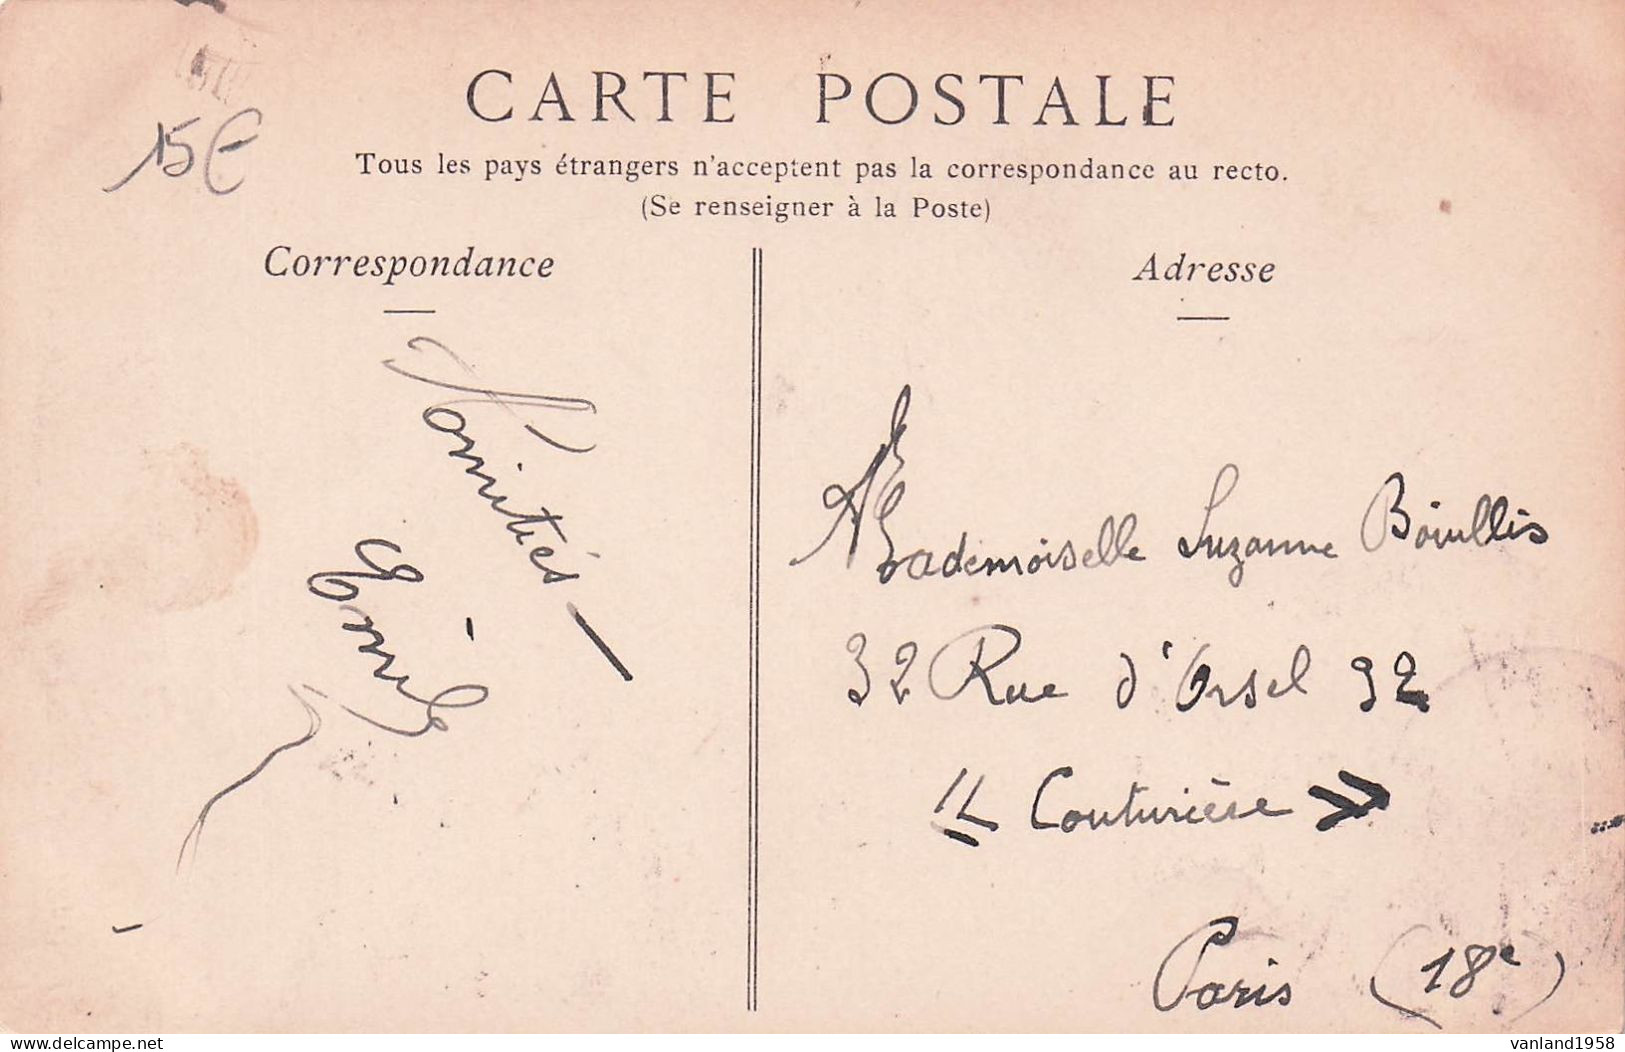 15€
CARTE POSTALE
Tous les pays étrangers n'acceptent pas la correspondance au recto.
(Se renseigner à la Poste)
Correspondance
Adresse
Amitiés —
Emile
Mademoiselle Suzanne
32 Rue d'Orsel 32
« Couturière »
Paris (18e)
vanland1958